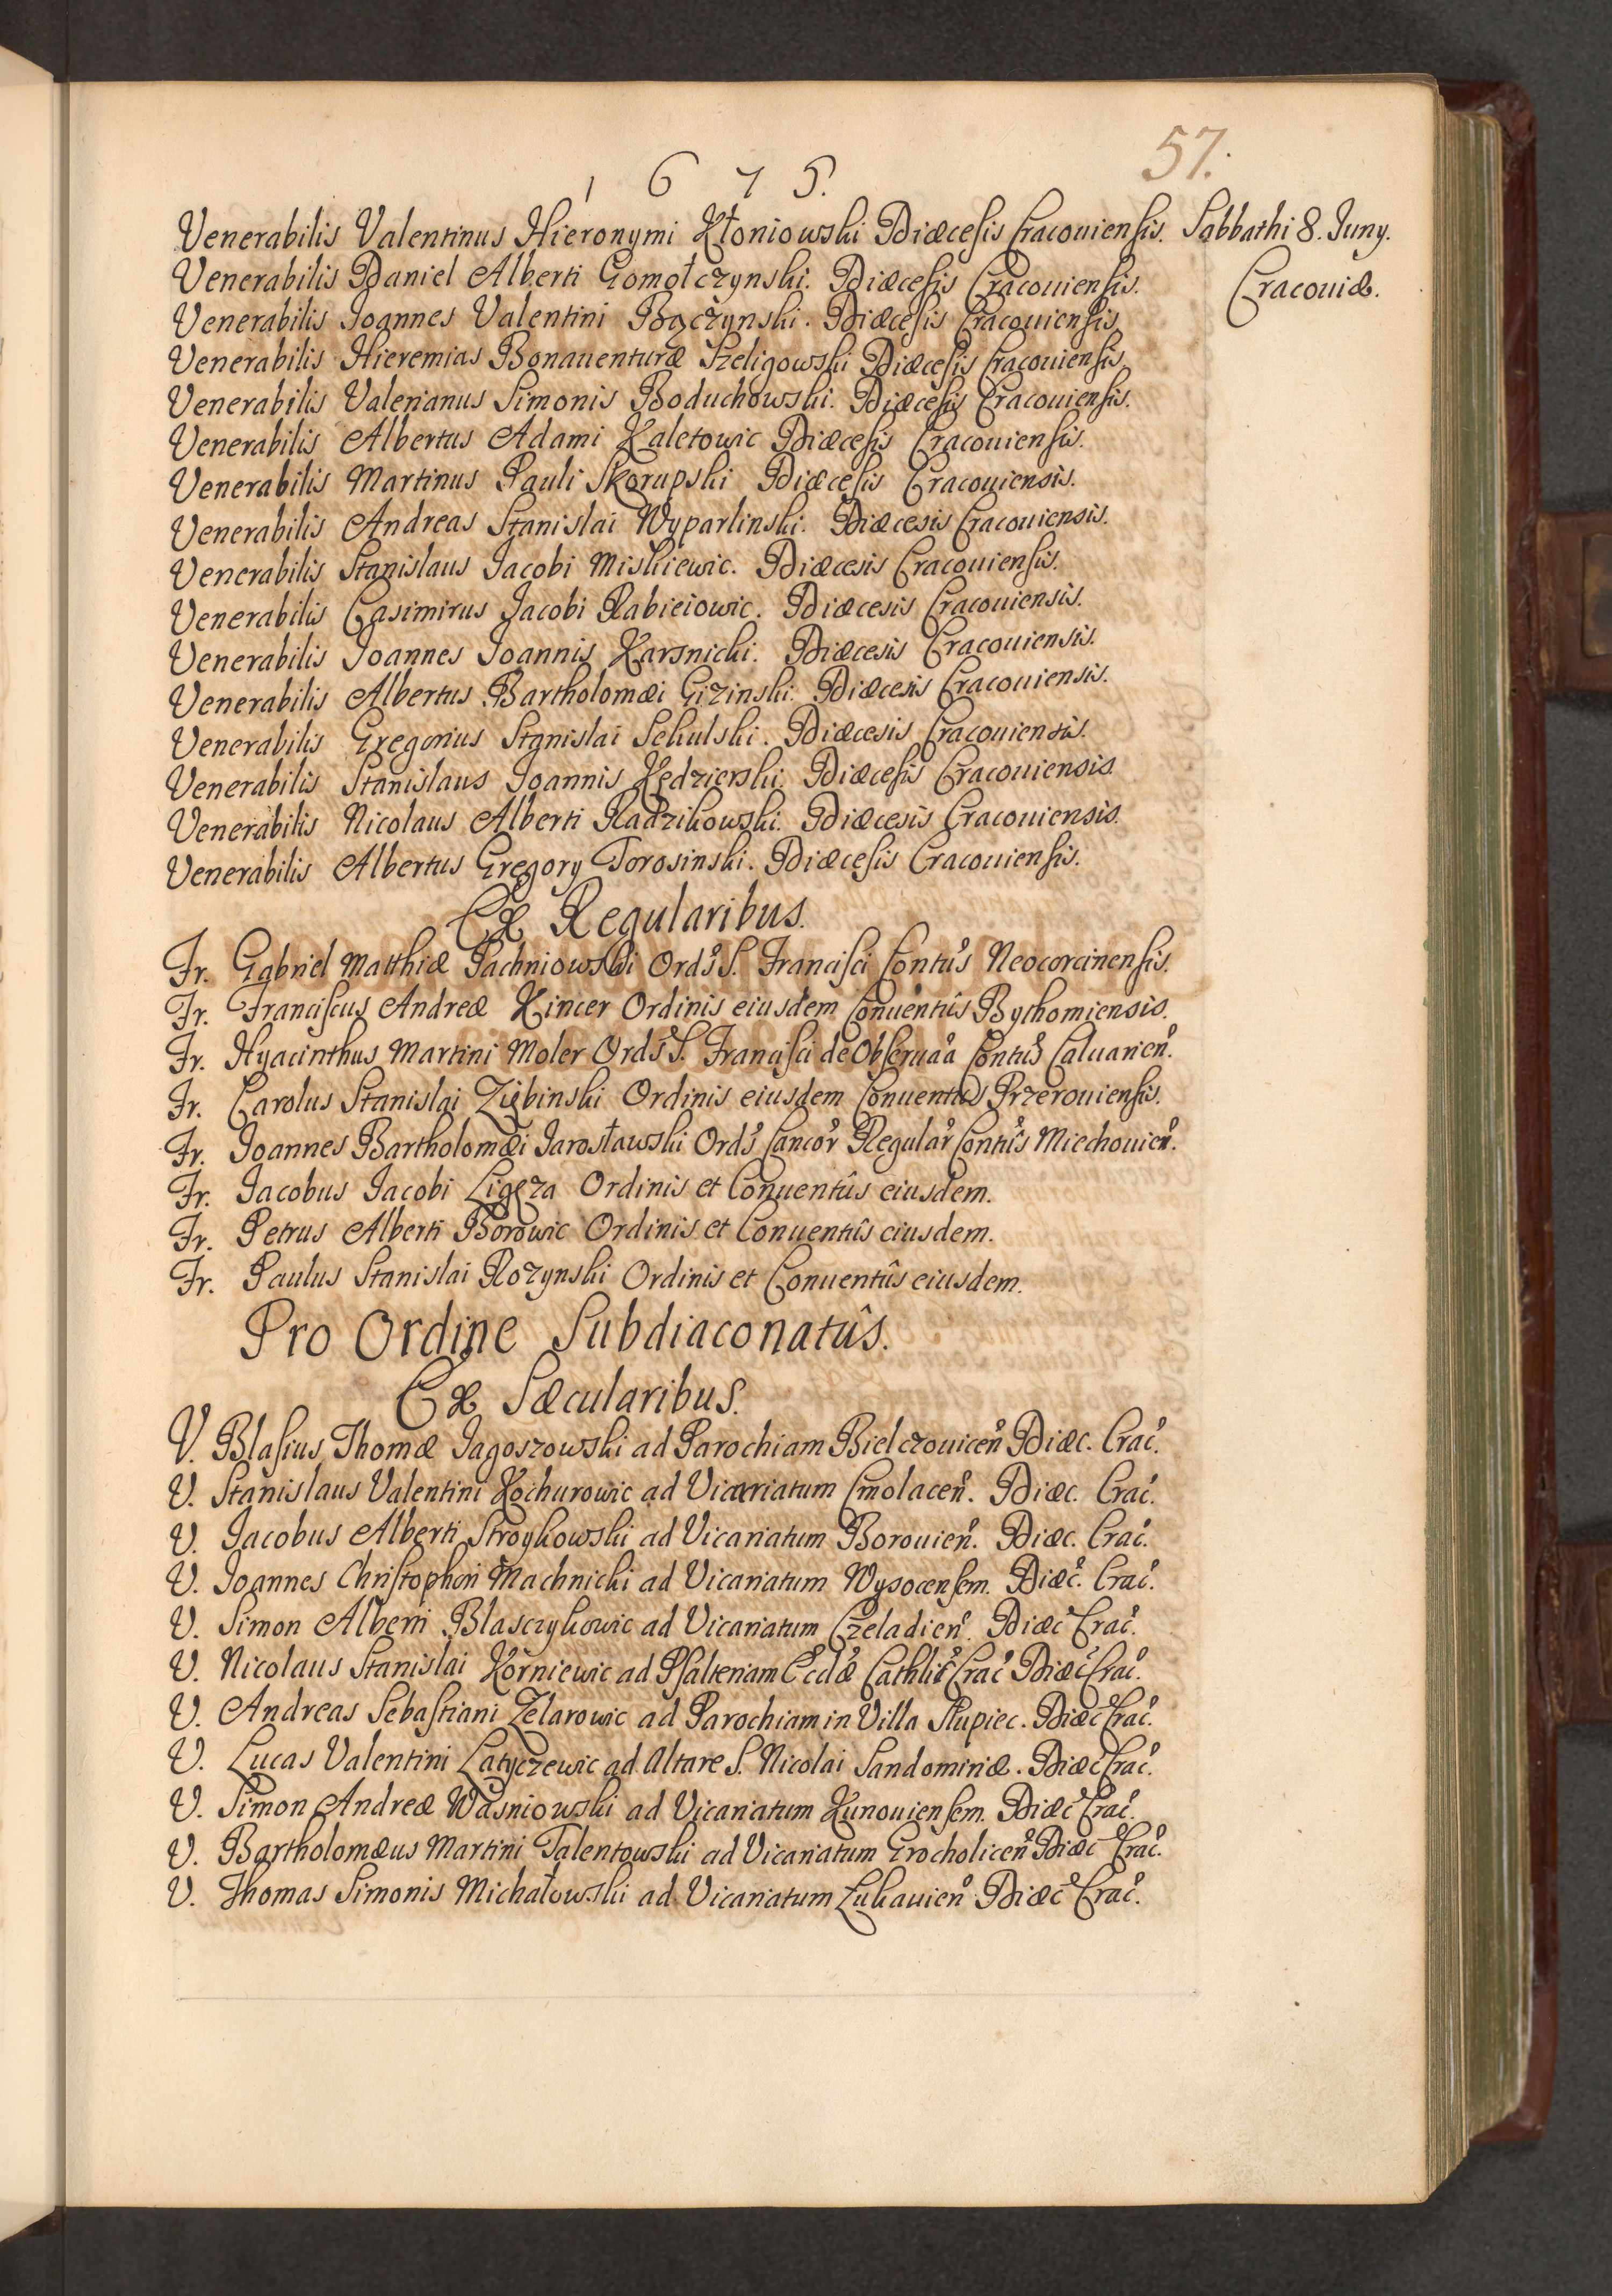 57.
1 6 7 5.
Venerabilis Valentinus Hieronymi Kłoniowski Diæcesis Cracouiensis. Sabbathi 8. Iuny.
Venerabilis Daniel Alberti Gomołczynski. Diæcesis Cracouiensis. Cracouiæ.
Venerabilis Ioannes Valentini Bączynski. Diæcesis Cracouiensis
Venerabilis Hieremias Bonauenturæ Szeligowski Diæcesis Cracouiensis.
Venerabilis Valerianus Simonis Boduchowski. Diæcesis Cracouiensis.
Venerabilis Albertus Adami Kaletowic Diæcesis Cracouiensis.
Venerabilis Martinus Pauli Skorupski Diæcesis Cracouiensis.
Venerabilis Andreas Stanislai Wyparlinski. Diæcesis Cracouiensis.
Venerabilis Stanislaus Iacobi Miskiewic. Diæcesis Cracouiensis.
Venerabilis Casimirus Iacobi Rabieiowic. Diæcesis Cracouiensis.
Venerabilis Ioannes Ioannis Karsnicki. Diæcesis Cracouiensis.
Venerabilis Albertus Bartholomæi Gizinski. Diæcesis Cracouiensis.
Venerabilis Gregorius Stanislai Sekulski. Diæcesis Cracouiensis.
Venerabilis Stanislaus Ioannis Kędzierski. Diæcesis Cracouiensis
Venerabilis Nicolaus Alberti Radzikowski. Diæcesis Cracouiensis.
Venerabilis Albertus Gregory Torosinski. Diæcesis Cracouiensis.
Ex Regularibus.
Fr. Gabriel Matthiæ Pachniowski Ords S. Francisci Contus Neocorcinensis.
Fr. Franciscus Andreæ Kincer Ordinis eiusdem Conuentûs Bythomiensis.
Fr. Hyacinthus Martini Moler Ords S. Francisci de Obseruaa Contus Caluarien.
Fr. Carolus Stanislai Ziębinski Ordinis eiusdem Conuentus Przerouiensis.
Fr. Ioannes Bartholomæi Iarosławski Ords Cancor Regular Contus Miechouien.
Fr. Iacobus Iacobi Ligęza Ordinis et Conuentûs eiusdem.
Fr. Petrus Alberti Borowic Ordinis et Conuentûs eiusdem.
Fr. Paulus Stanislai Rozynski Ordinis et Conuentûs eiusdem.
Pro Ordine Subdiaconatûs.
Ex Sæcularibus.
V. Blasius Thomæ Iagoszowski ad Parochiam Bielczouicen Diæc. Crac.
V. Stanislaus Valentini Kochurowic ad Vicarriatum Smolacen. Diæc. Crac.
V. Iacobus Alberti Stroykowski ad Vicariatum Borouien. Diæc. Crac.
V. Ioannes Christophori Machnicki ad Vicariatum Wysocensem. Diæc. Crac.
V. Simon Alberti Blasczykowic ad Vicariatum Czeladien. Diæc Crac.
V. Nicolaus Stanislai Korniewic ad Psalteriam Eccllæ Cathlis Crac Diæc Crac.
V. Andreas Sebastiani Zelarowic ad Parochiam in Villa Słupiec. Diæc Crac.
V. Lucas Valentini Latyczewic ad Altare S. Nicolai Sandomiriæ. Diæc Crac.
V. Simon Andreæ Wasniowski ad Vicariatum Kunouiensem. Diæc Crac.
V. Bartholomæus Martini Talentowski ad Vicariatum Grocholicen Diæc Crac.
V. Thomas Simonis Michałowski ad Vicariatum Lukauien Diæc Crac.